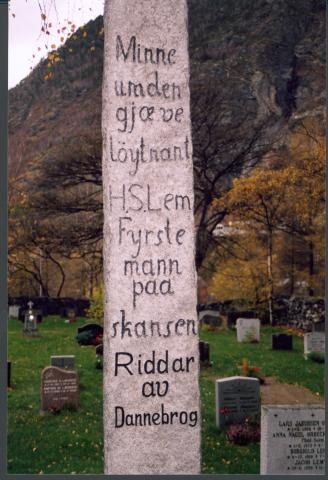 Minne
um den
gjæve
löytnant
H.S.Lem
Fyrste
mann
paa
skansen
Riddar
av
Dannebrog
LARS JAKOBSEN
ANNA
JACOB LEM